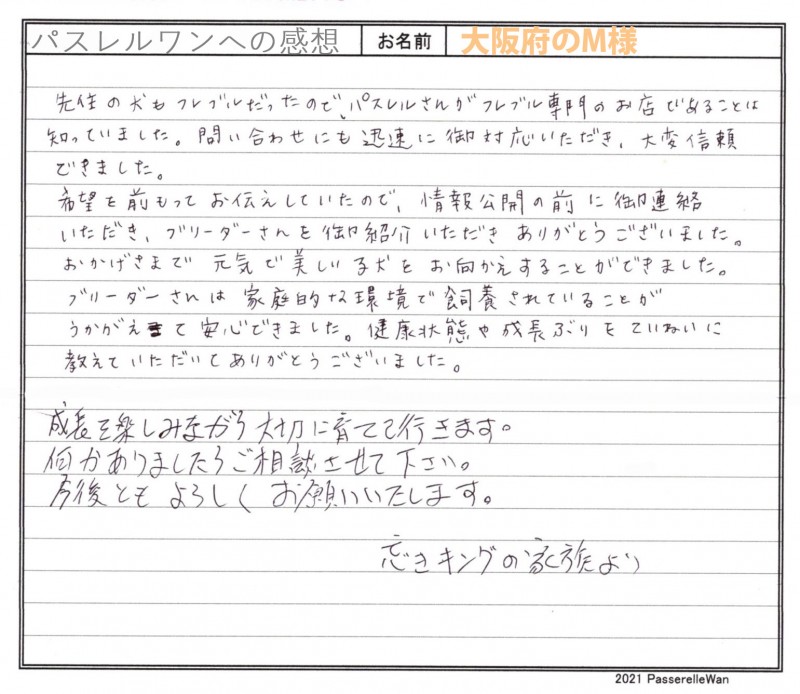 パスレルワンへの感想 お名前 大阪府のM様
先住の犬もフレブルだったので、パスレルさんがフレブル専門のお店であることは
知っていました。問い合わせにも迅速に御対応いただき、大変信頼
できました。
希望を前もってお伝えしていたので、情報公開の前に御連絡
いただき、ブリーダーさんを御紹介いただきありがとうございました。
おかげさまで元気で美しいる犬をお向かえすることができました。
ブリーダーさんは家庭的な環境で飼養されていることが
うかがえて安心できました。健康状態や成長ぶりをていねいに
教えていただいてありがとうございました。
成長を楽しみながら大切に育てて行きます。
何かありましたらご相談させて下さい。
今後ともよろしくお願いいたします。
キングの家族より
2021 PasserelleWan